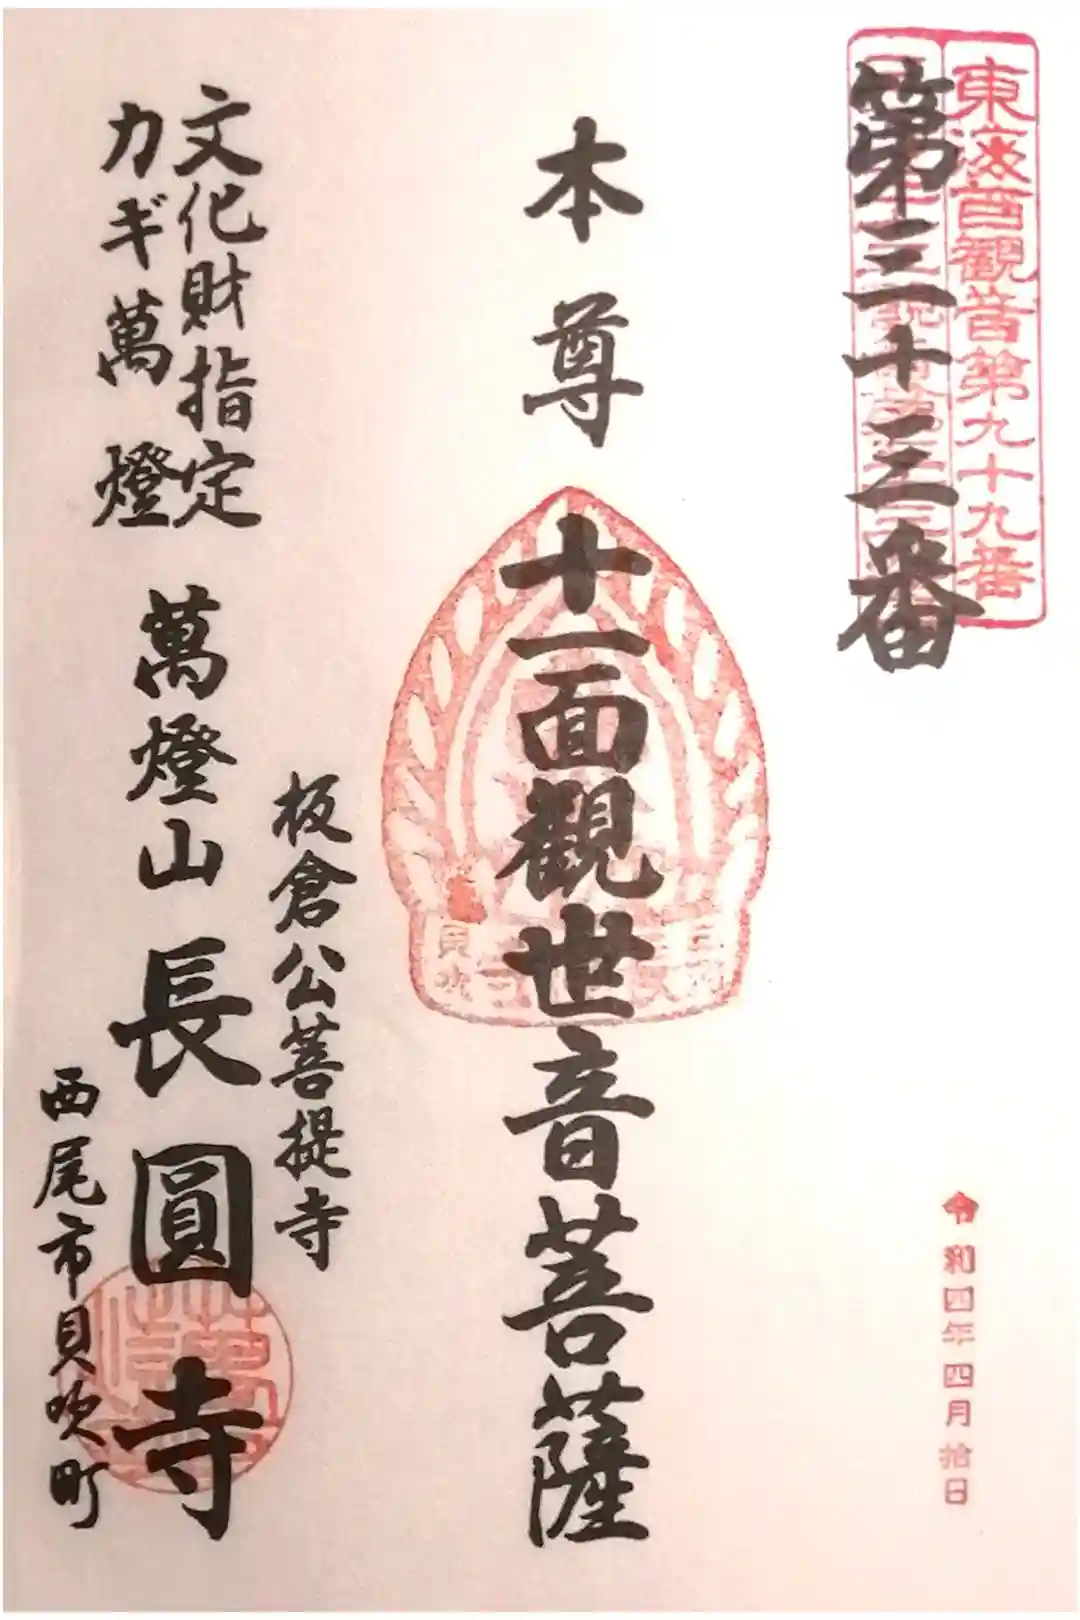 東海百觀音第九十九番
第三十三番
令和四年四月拾日
本尊
十一面觀世音菩薩
板倉公菩提寺
文化財指定
カギ萬燈
萬燈山長圓寺
西尾市貝吹町